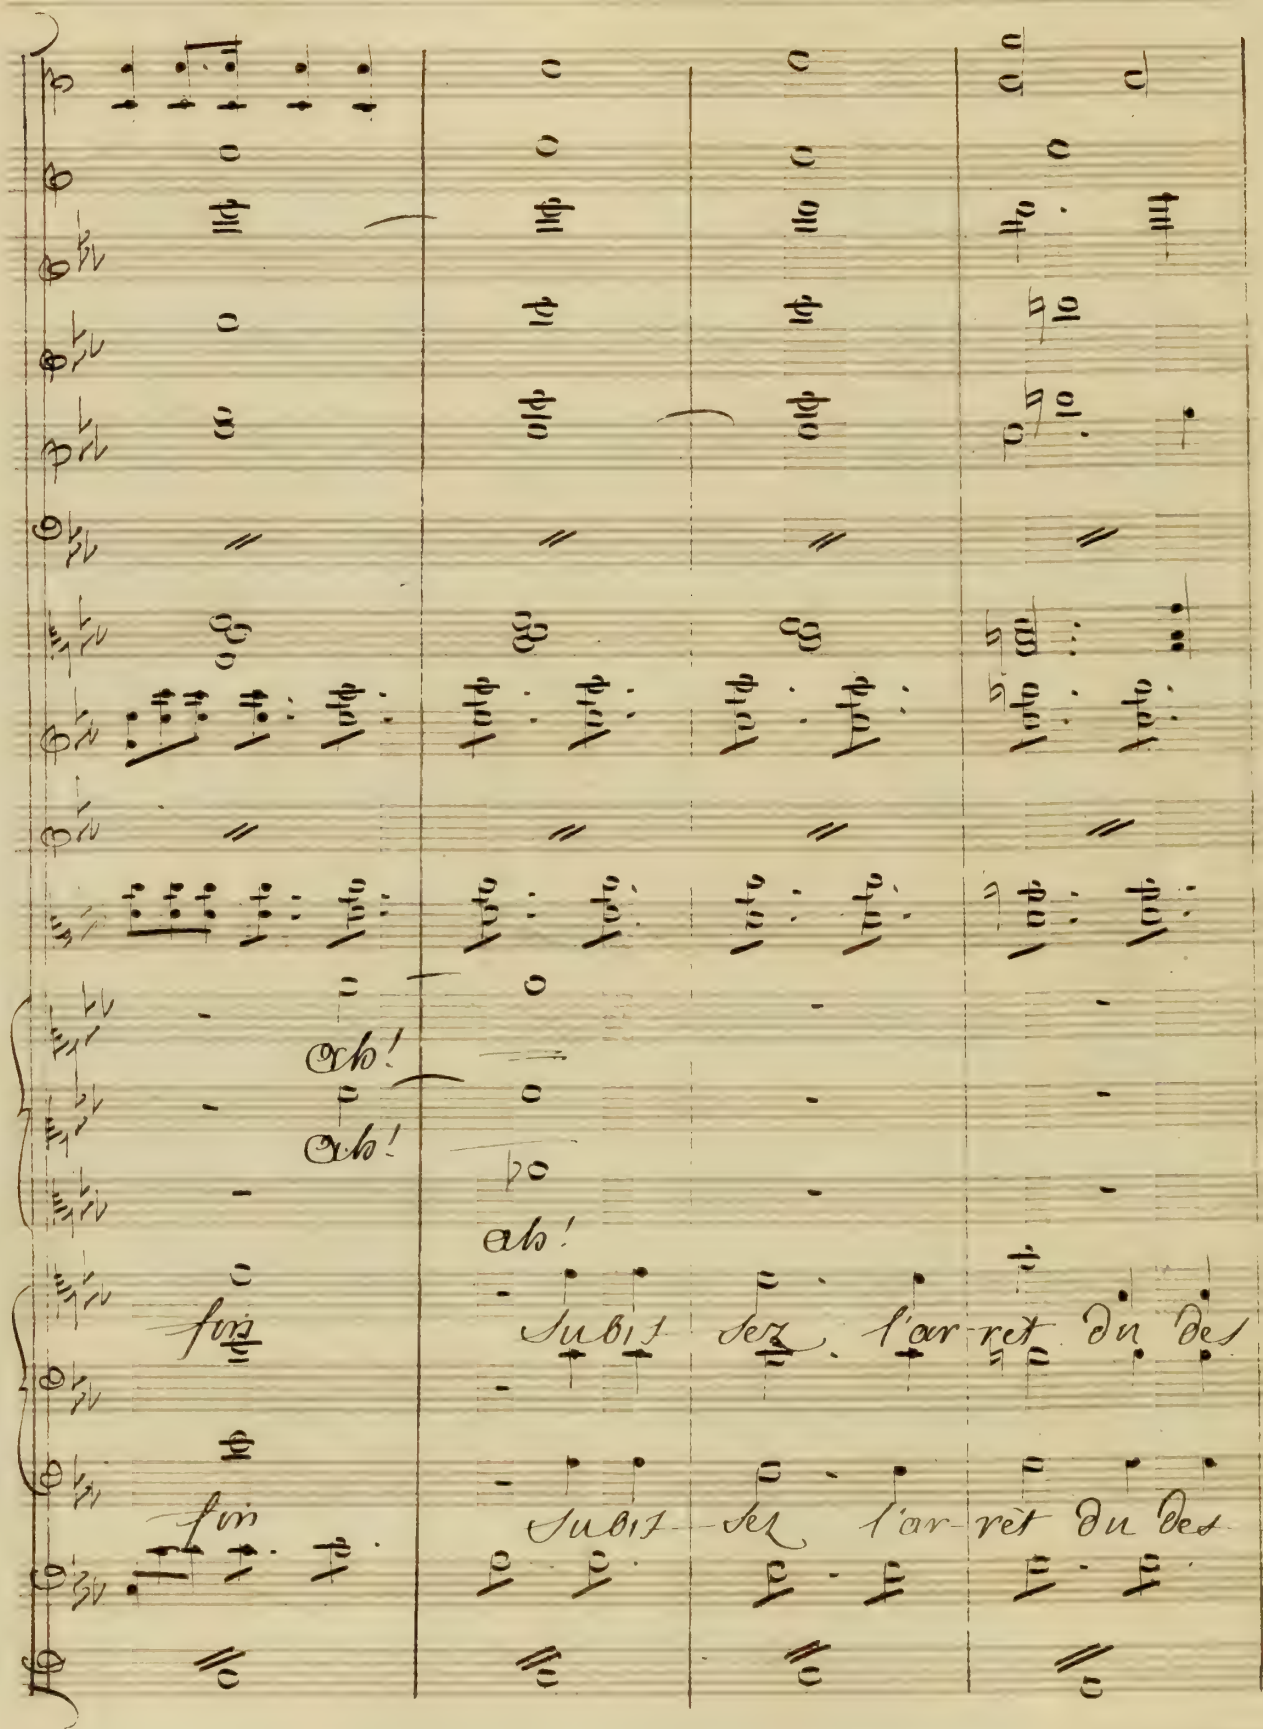 ah!
ah!
ah!
fois subis sez l'ar ret du des
fois subis sez l'ar rèt du des